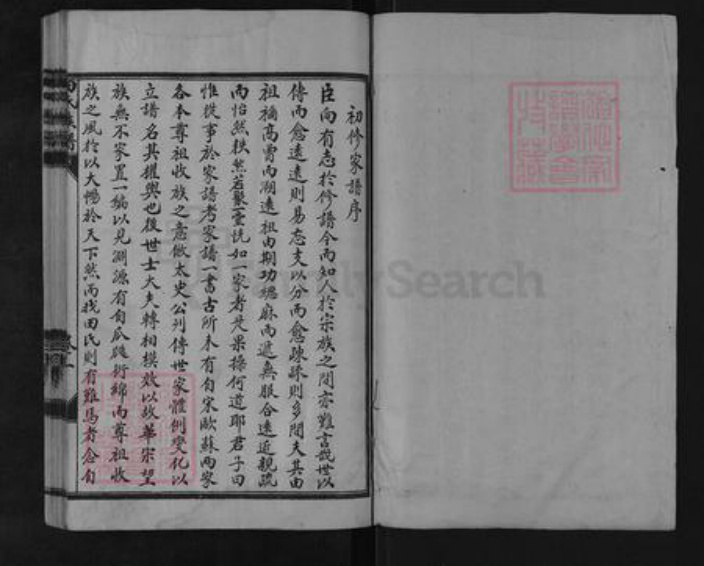 初修家譜序
臣向有志於修譜今而知人於宗族之間亦難言哉世以
傳而愈遠遠則易忘支以分而愈疎疎則多間夫其由
祖禰高曾而溯遠祖由期功緦麻而遞無服合遠近親疏
而怡然秩然若聚一堂恍如一家者是果操何道耶君子曰
惟從事於家譜考家譜一書古所未有自宋歐蘇兩家
各本尊祖收族之意倣太史公列傳世家體例變化以
立譜名其權輿也後世士大夫轉相模效以故華宗望
族無不家置一編以見淵源有自瓜瓞衍綿而尊祖收
族之風於以大暢於天下然而我田氏則有難焉者念自
田氏族譜
卷之一
FamilySearch